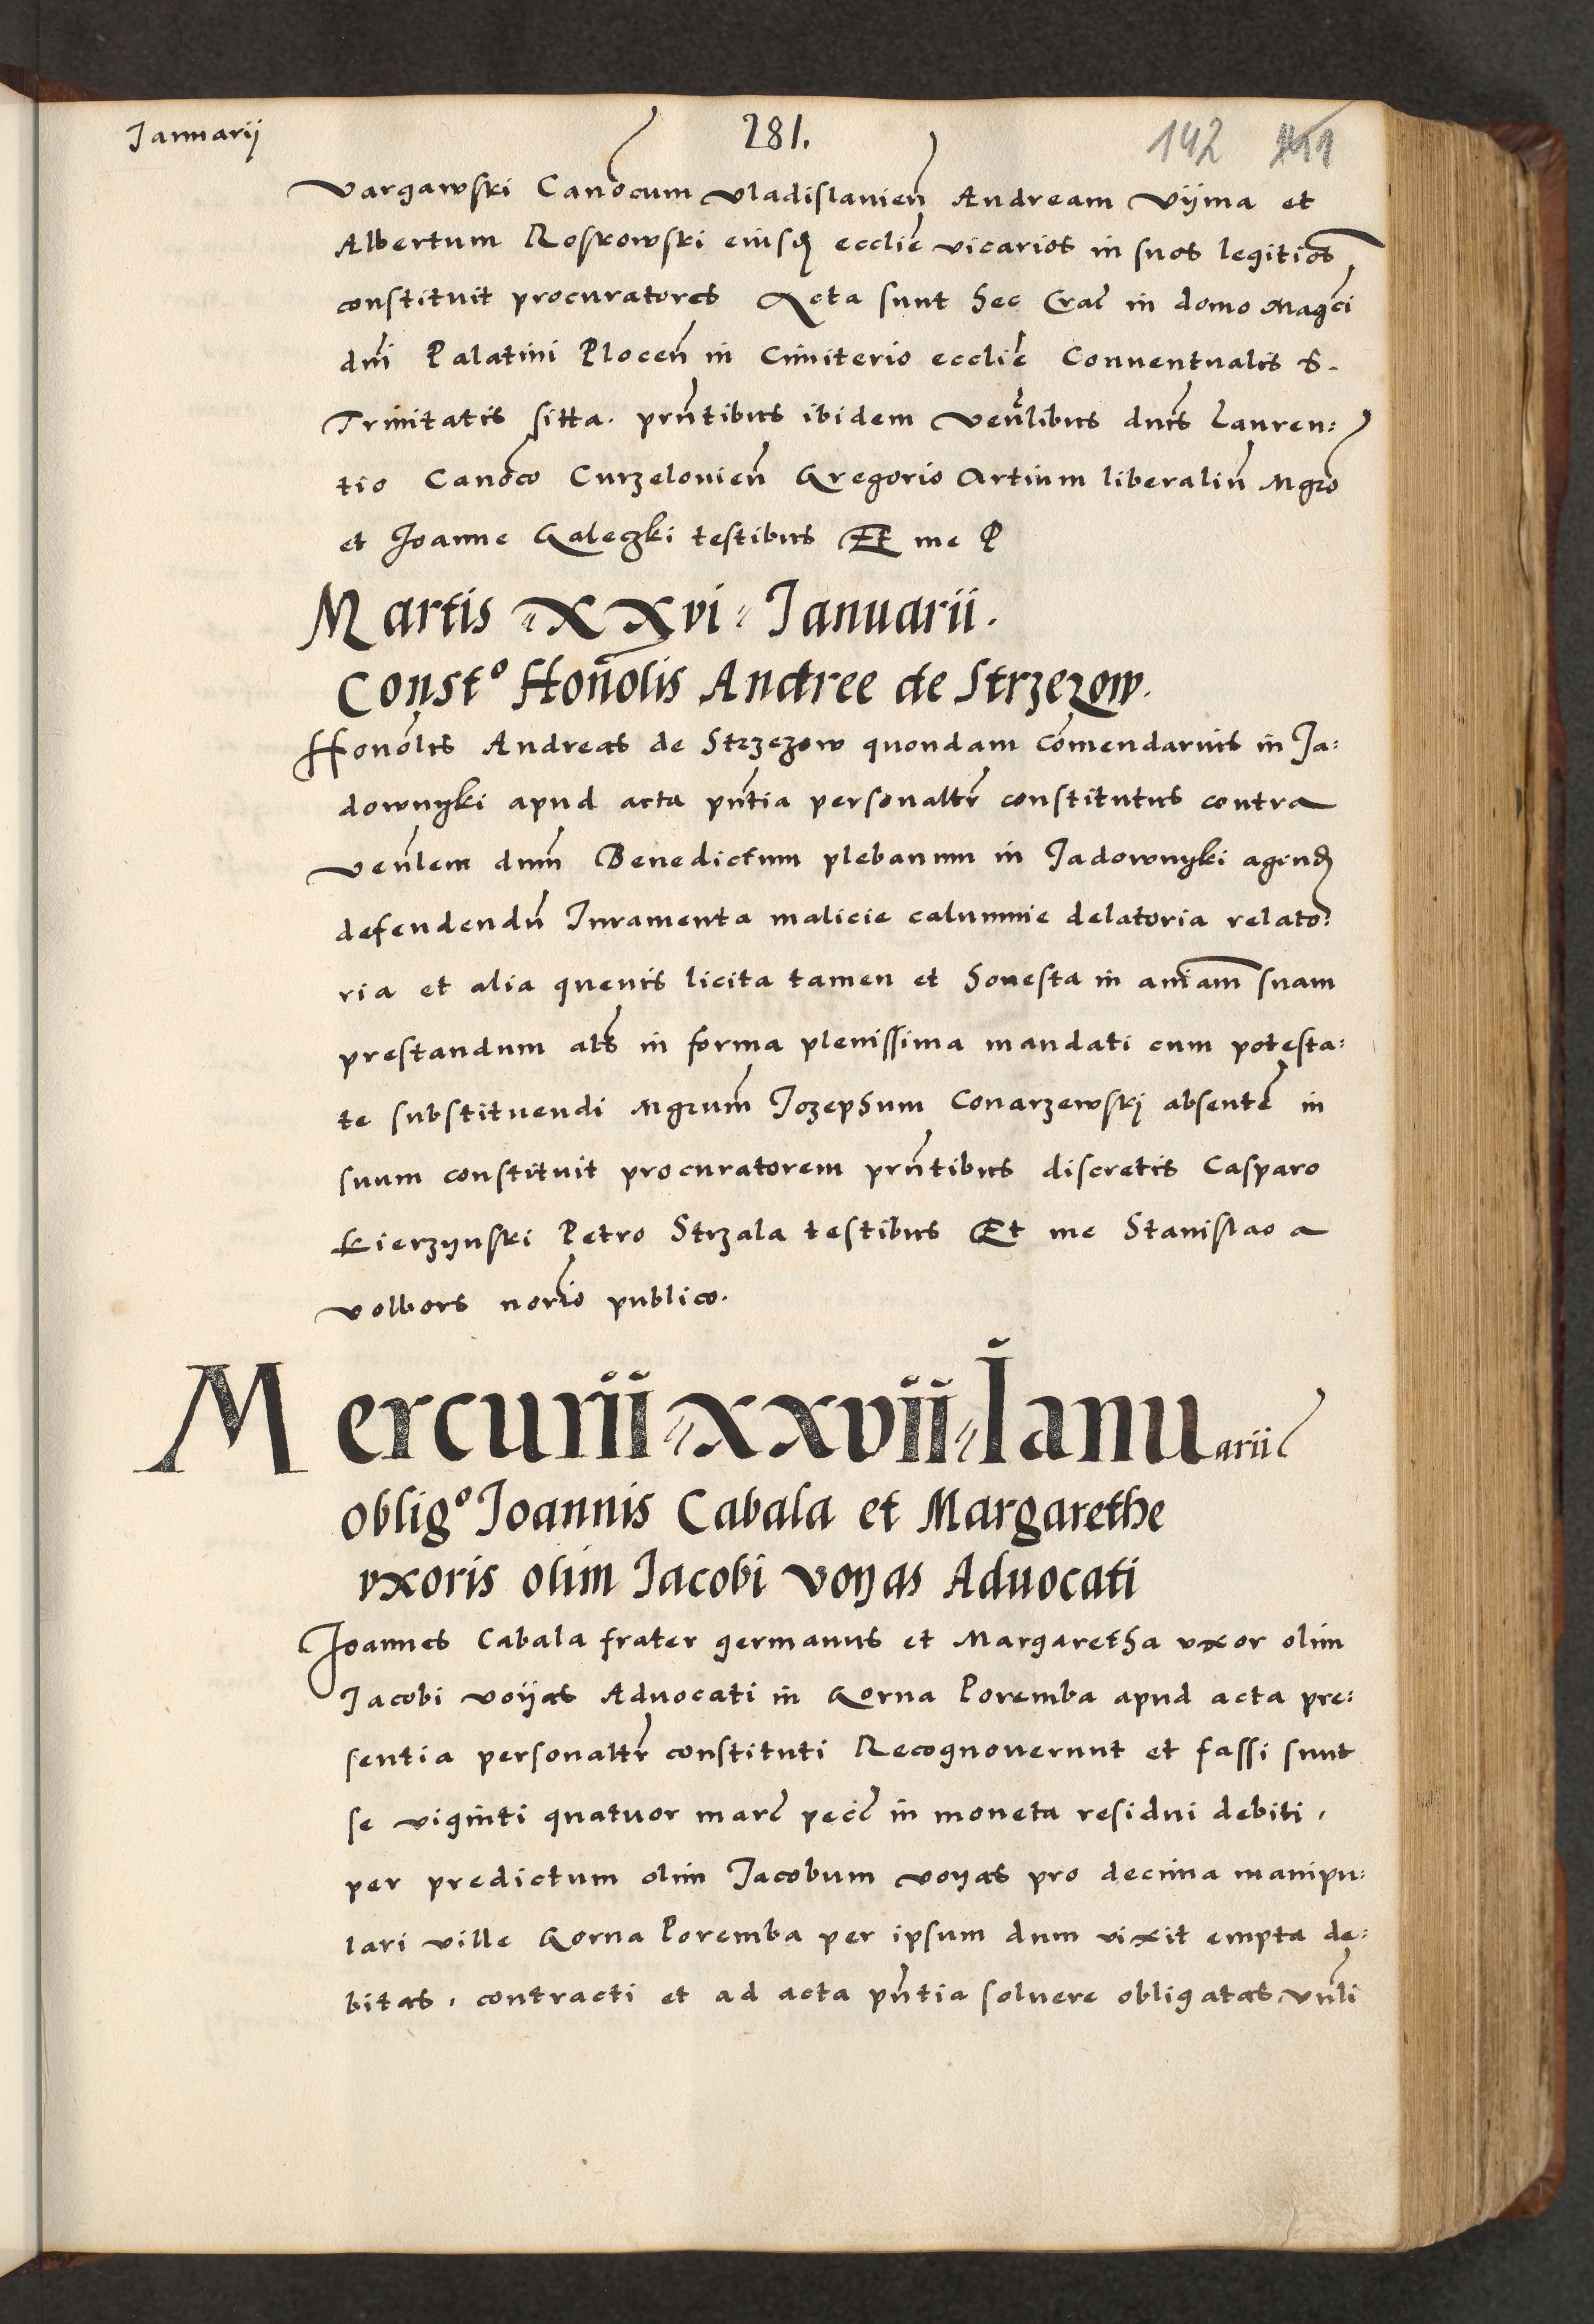 Januarij
281.
142
Vargawski Canocum Vladislavien Andream Vijma et
Albertum Roskowski eiusd ecclie vicarios in suos legitios
constituit procuratores Acta sunt hec Crac in domo Magci
dni Palatini Plocen in Cimiterio ecclie Conventualis S.
Trinitatis sitta. prntibus ibidem Venlibus dnis Lauren:
tio Canoco Curzelovien Gregorio Artium liberaliu Mgro
et Joanne Galeczki testibus Et me
Martis xxvi Januarii.
Const⁰ Honolis Andree de Strzezow.
Honolis Andreas de Strzezow quondam Comendarius in Ja:
downyki apud acta pntia personaltr constitutus contra
Venlem dnm Benedictum plebanum in Jadownyki agend
defendendu Iuramenta malicie calumnie delatoria relato:
ria et alia quevis licita tamen et honesta in aniam suam
prestandum als in forma plenissima mandati cum potesta:
te substituendi Mgrum Jozephum Conarzewskj absente in
suum constituit procuratorem prntibus discretis Casparo
Kierzynski Petro Strzala testibus Et me Stanislao a
Volbors norio publico.
Mercurii xxvii Januarii
oblig⁰ Joannis Cabala et Margarethe
vxoris olim Jacobi Voyas Aduocati
Joannes Cabala frater germanus et Margaretha vxor olim
Jacobi Voijas Aduocati in Gorna Poremba apud acta pre:
sentia personaltr constituti Recognoverunt et fassi sunt
se viginti quatuor marc pecc in moneta residui debiti,
per predictum olim Jacobum Voyas pro decima manipu:
lari ville Gorna Poremba per ipsum dum vixit empta de:
bitas, contracti et ad acta pntia solvere obligatas Vnli